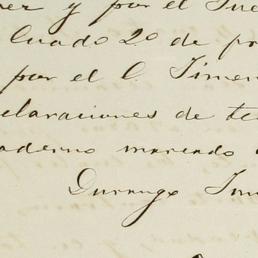 y por el Jue
Cuado 2o de pr
por el C. Jimen
claraciones de te
aderno marcado
Durango Jun